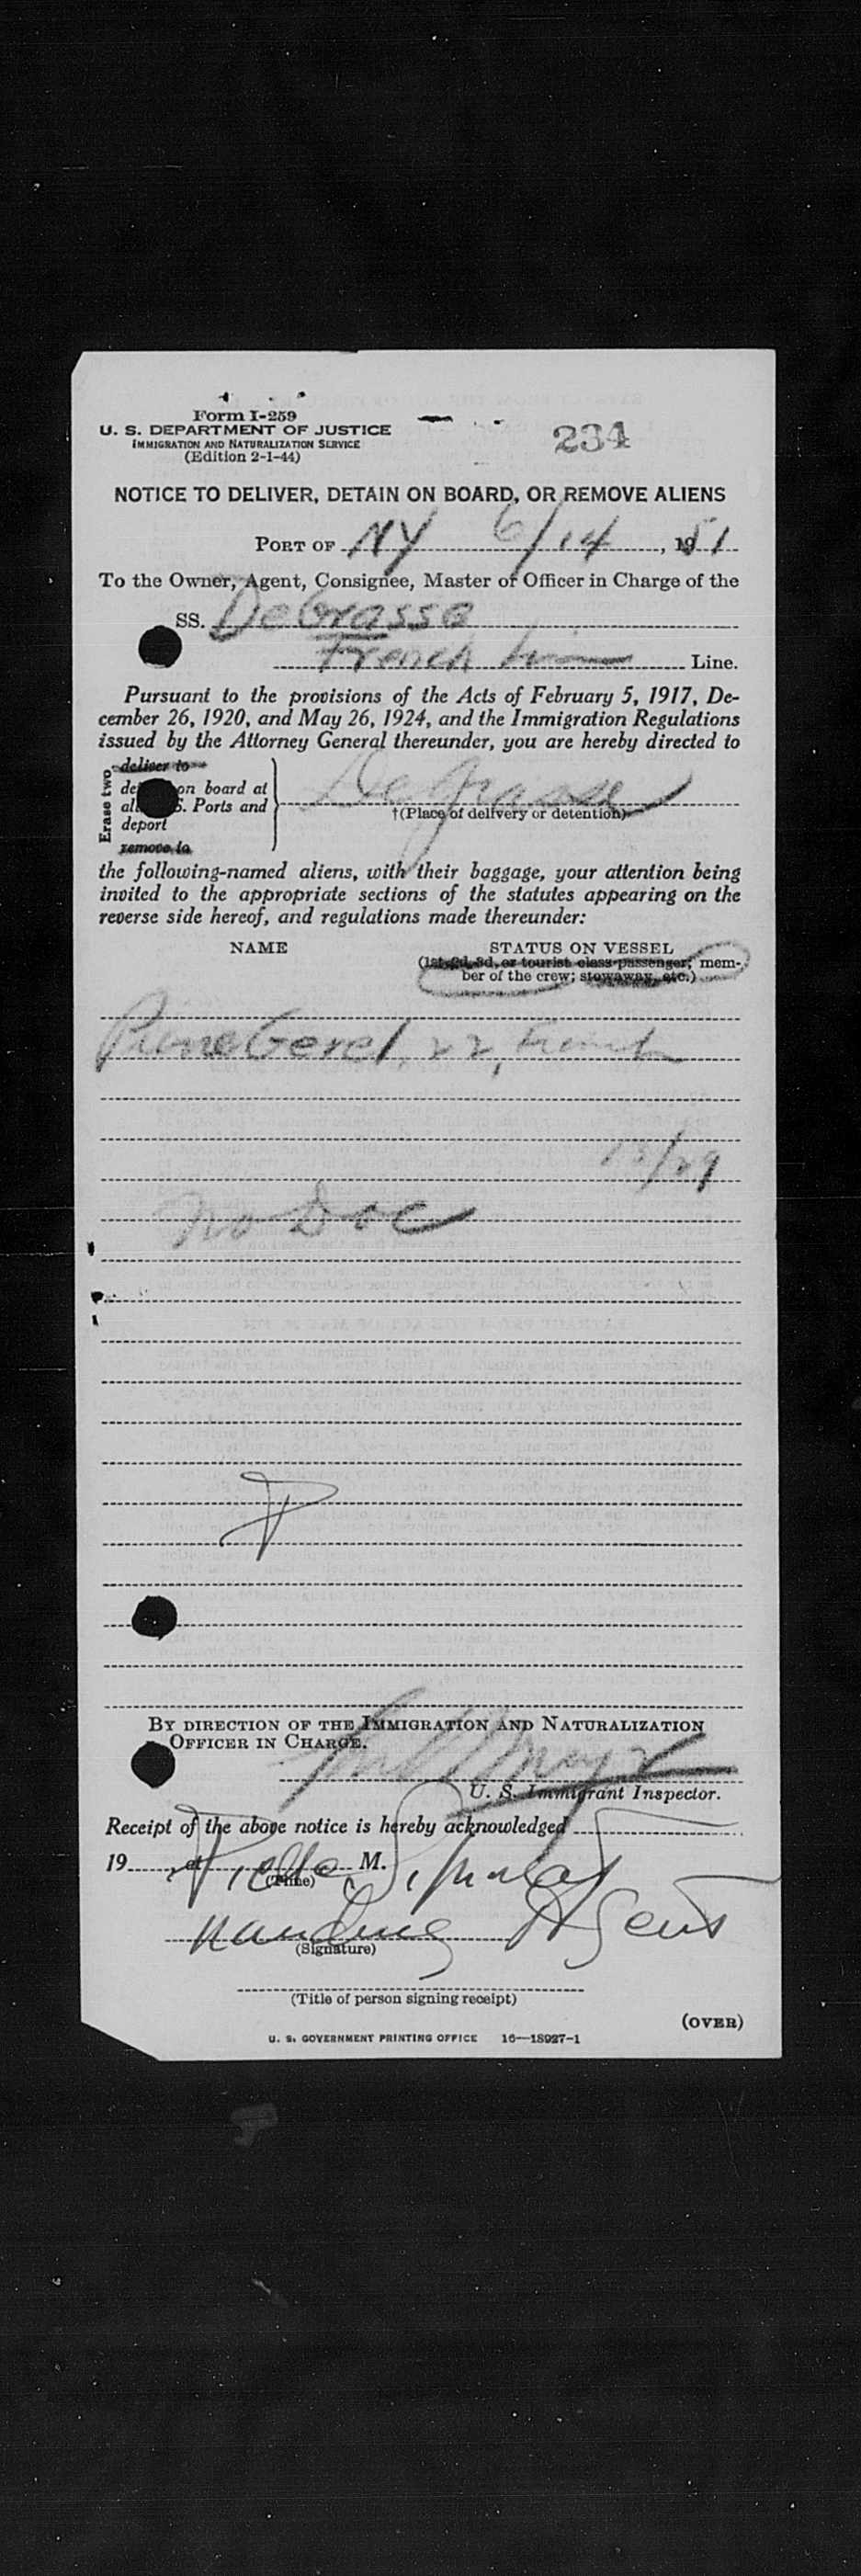 Form I-259
U. S. DEPARTMENT OF JUSTICE
IMMIGRATION AND NATURALIZATION SERVICE
(Edition 2-1-44)
234
NOTICE TO DELIVER, DETAIN ON BOARD, OR REMOVE ALIENS
PORT OF NY 6/14, 1951
To the Owner, Agent, Consignee, Master or Officer in Charge of the
SS. DeGrasse
French Line Line.
Pursuant to the provisions of the Acts of February 5, 1917, De-
cember 26, 1920, and May 26, 1924, and the Immigration Regulations
issued by the Attorney General thereunder, you are hereby directed to
Erase two
deliver to
on board at
S. Ports and
deport
remove to
DeGrasse
†(Place of delivery or detention)
the following-named aliens, with their baggage, your attention being
invited to the appropriate sections of the statutes appearing on the
reverse side hereof, and regulations made thereunder:
NAME STATUS ON VESSEL
(1st, 2d, 3d, or tourist class passenger; mem-
ber of the crew; stowaway, etc.)
22, French
/29
No Doc
BY DIRECTION OF THE IMMIGRATION AND NATURALIZATION
OFFICER IN CHARGE.
U. S. Immigrant Inspector.
Receipt of the above notice is hereby acknowledged
19 , at M.
(Time)
Agent
(Signature)
(Title of person signing receipt)
(OVER)
U. S. GOVERNMENT PRINTING OFFICE 16—18927-1